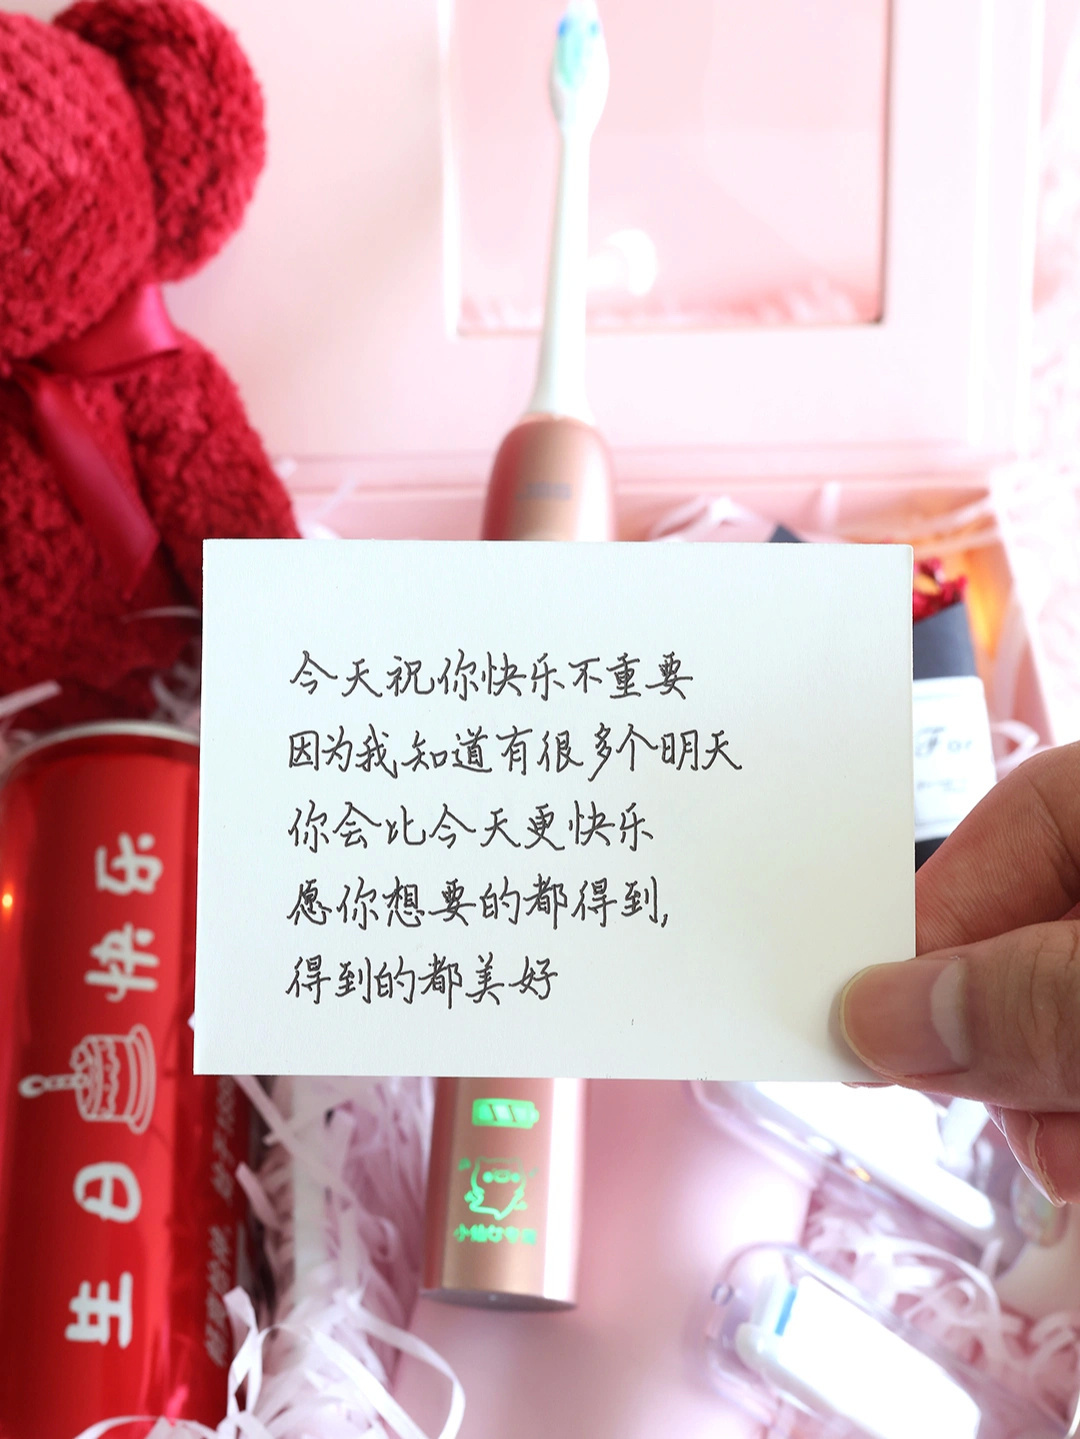 今天祝你快乐不重要
因为我知道有很多个明天
你会比今天更快乐
愿你想要的都得到,
得到的都美好
生日快乐